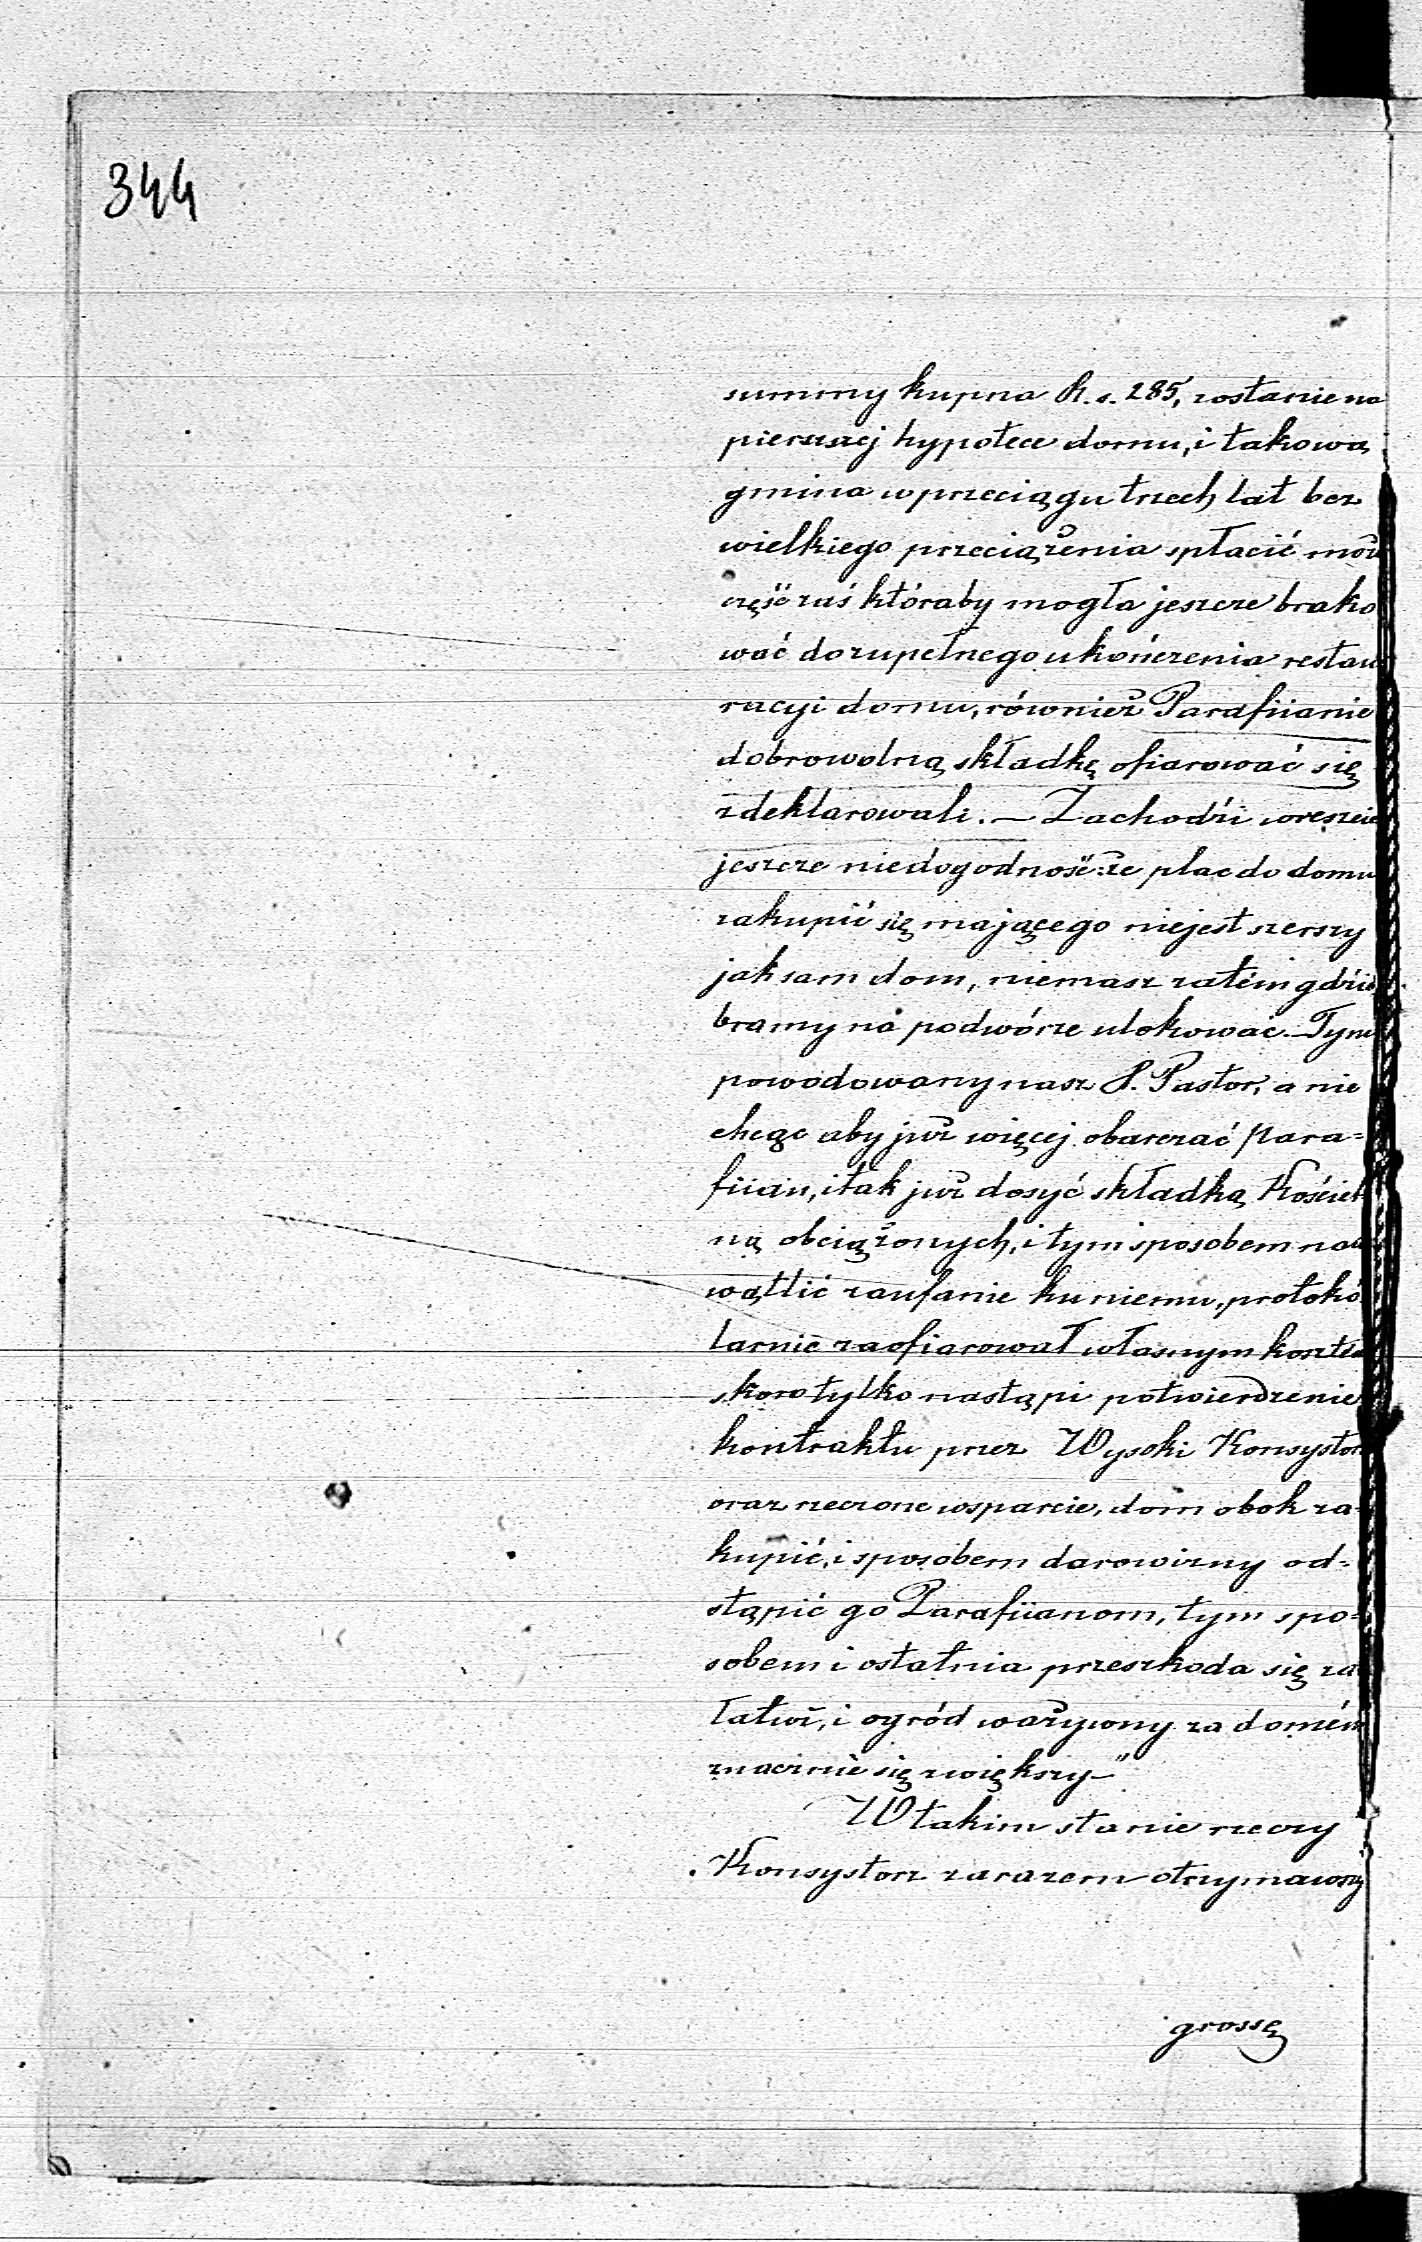 344
summy kupna R. s. 285, zostanie na
pierwszej hypotece domu, i takową
gmina w przeciągu trzech lat bez
wielkiego przeciążenia spłacić moż
część zaś któraby mogła jeszcze brako
wać do zupełnego ukończenia restau
racyi domu, również Parafiianie
dobrowolną składkę ofiarować się
zdeklarowali. — Zachodzi wreszcie
jeszcze niedogodność że plac do domu
zakupić się mającego niejest szerszy
jak sam dom, niemasz zatém gdzie
bramy na podwórze ulokować. — Tym
powodowany nasz P. Pastor, a nie
chcąc aby już więcej obarczać Para=
fiian, i tak już dosyć składką Kościel
ną obciążonych, i tym sposobem nad
wątlić zaufanie ku niemu, protokó
larnie zaofiarował własnym kosztem
skoro tylko nastąpi potwierdzenie
kontraktu przez Wysoki Konsystorz
oraz rzeczone wsparcie, dom obok za
kupić, i sposobem darowizny od=
stąpić go Parafiianom, tym spo=
sobem i ostatnia przeszkoda się za
łatwi, i ogród warzywny za domém
znacznie się zwiększy —"
W takim stanie rzeczy
Konsystorz zarazem otrzymawszy
grossę